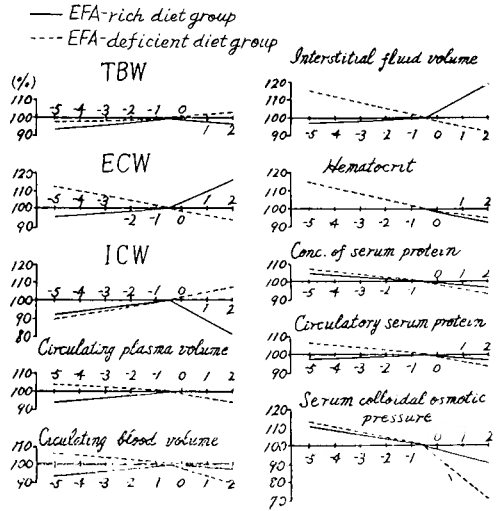 EFA-rich diet group
EFA-deficient diet group
(%)
TBW
110
100
90
-5 -4 -3 -2 -1 0
1 2
ECW
120
110
100
90
-5 -4 -3
-2 -1 0
1 2
ICW
120
110
100
90
80
-5 -4 -3 -2 -1 0 1 2
Circulating plasma volume
110
100
90
-5 -4 -3 -2 -1 0 1 2
Ciculating blood volume
110
100
90
-5 -4 -3 -2 -1 0 1 2
Interstitial fluid volume
120
110
100
90
-5 -4 -3 -2 -1 0 1 2
Hematocrit
120
110
100
90
1 2
-5 -4 -3 -2 -1 0
Conc. of serum protein
110
100
90
0 1 2
-5 -4 -3 -2 -1
Circulatory serum protein
110
100
90
1 2
-5 -4 -3 -2 -1 0
Serum colloidal osmotic
pressure
120
110
100
90
80
70
0 1 2
-5 -4 -3 -2 -1